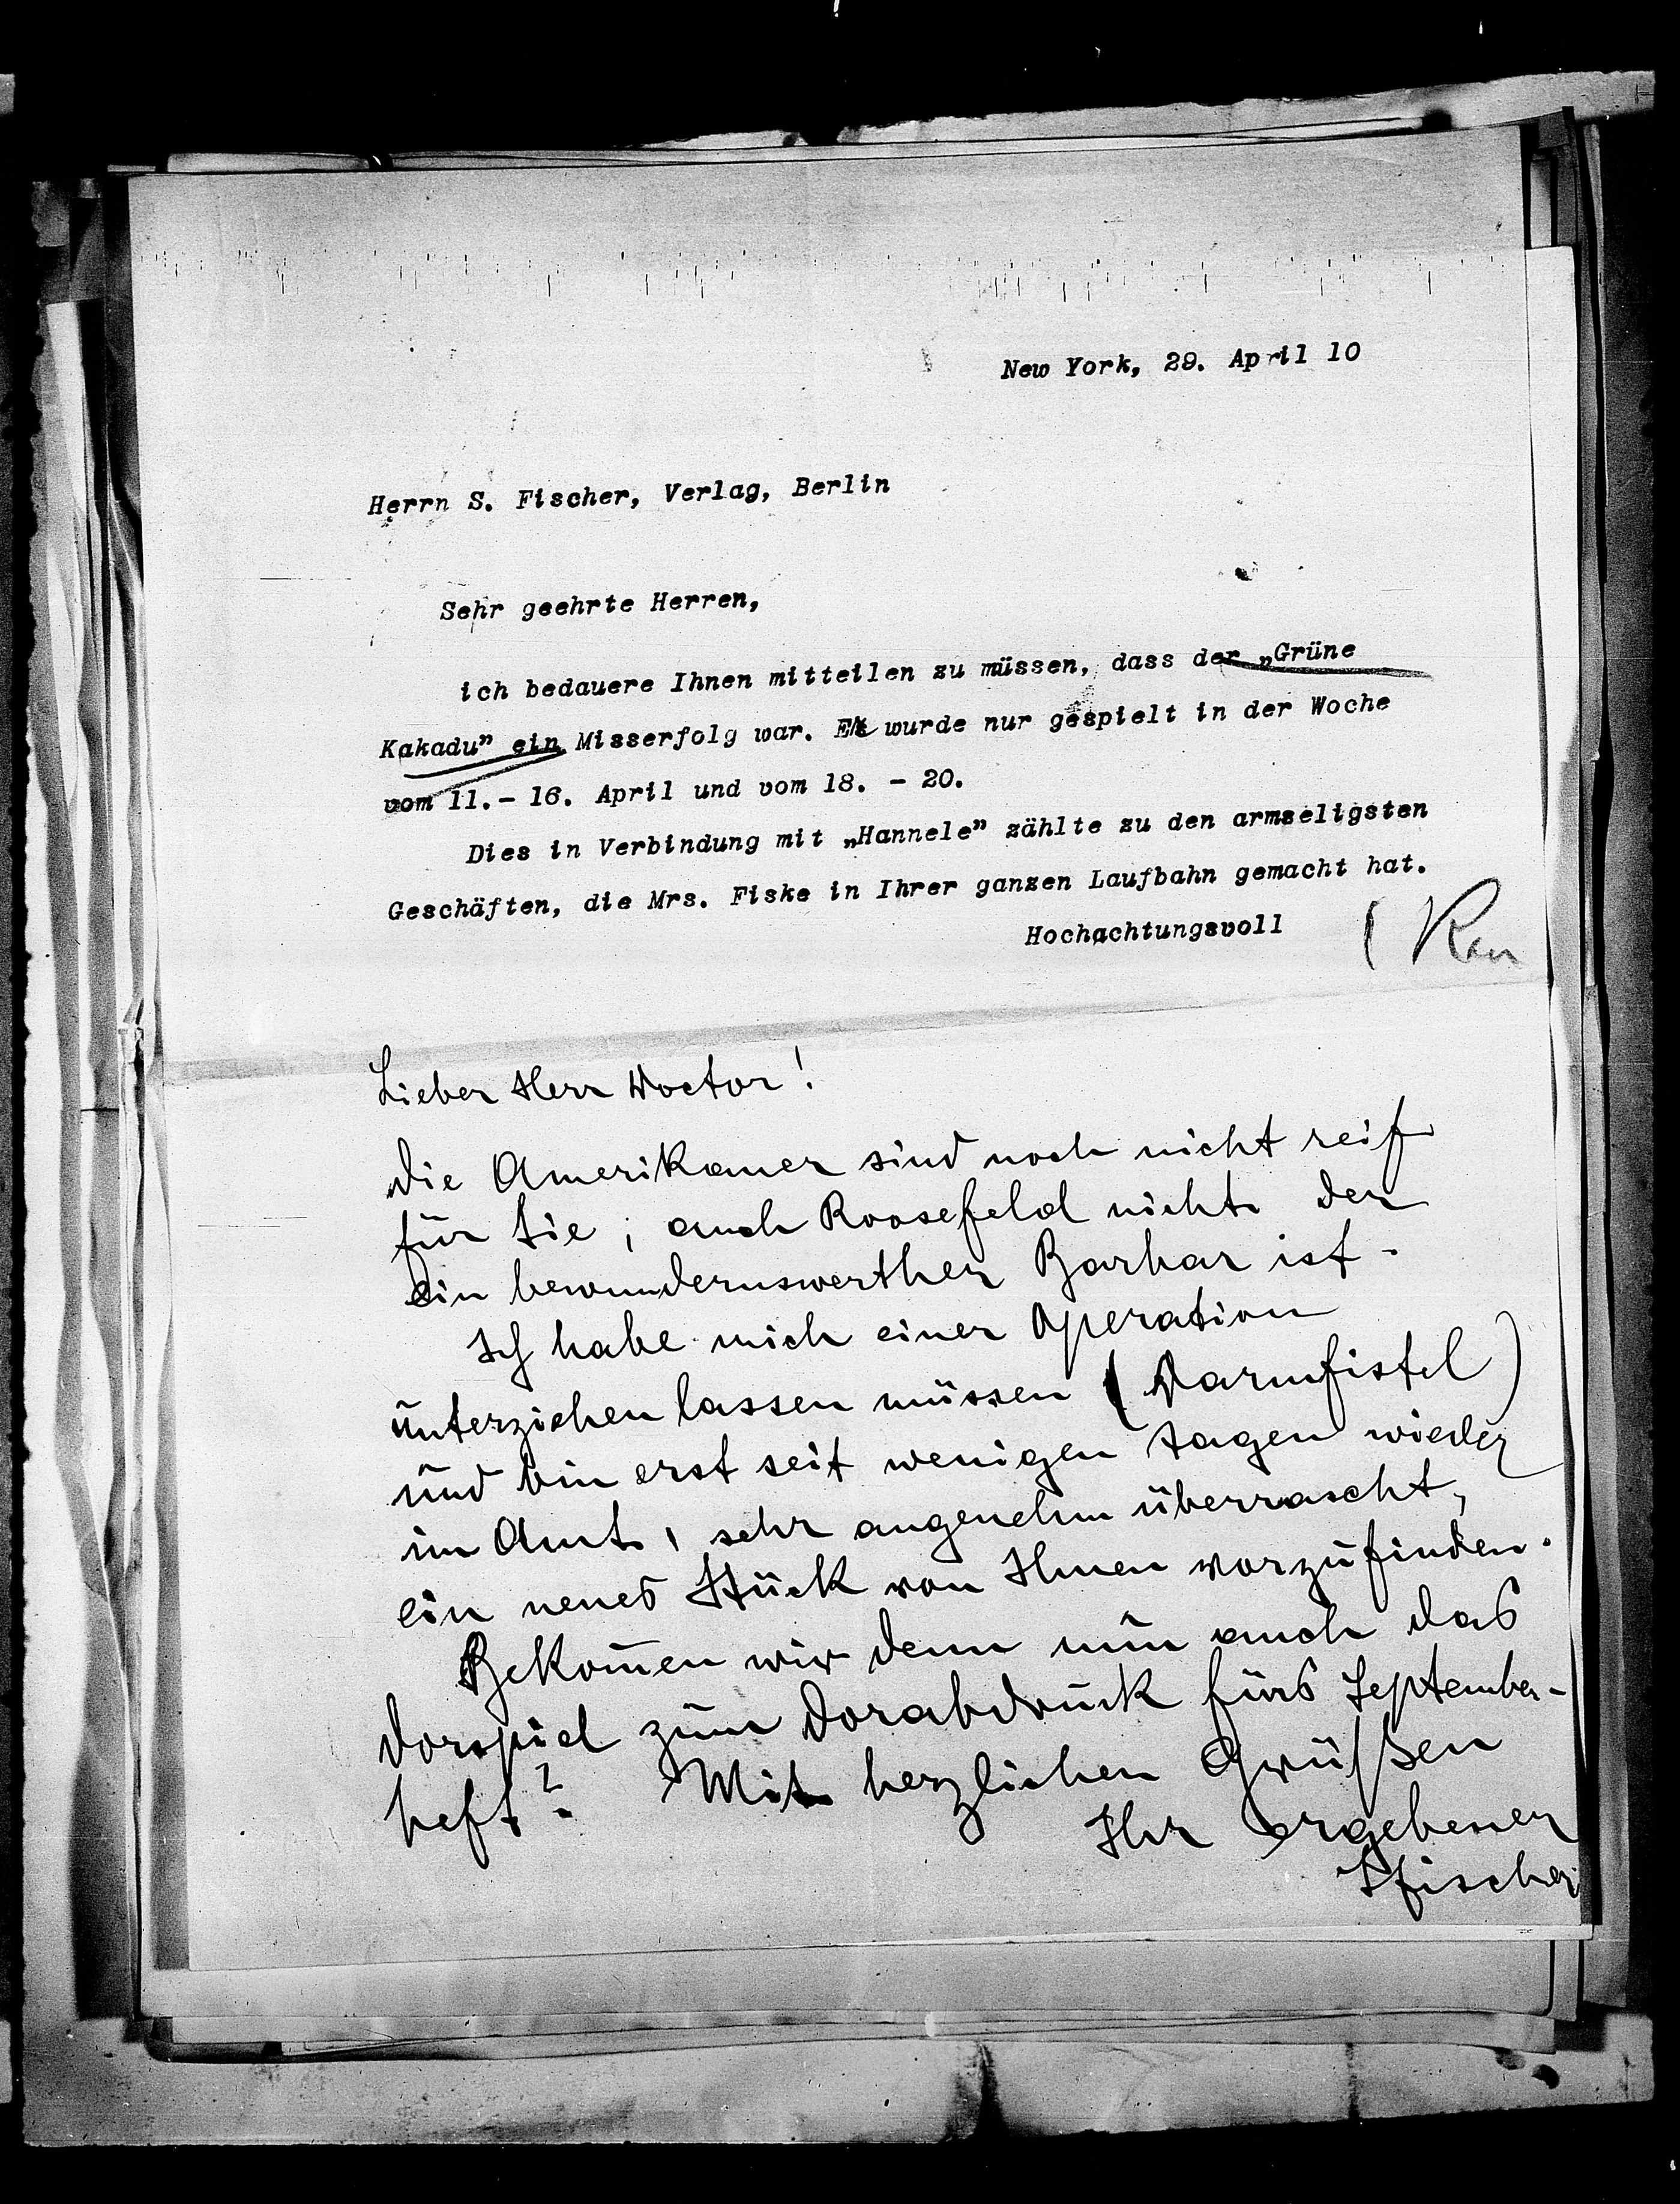 New York, 29. April 10
Herrn S. Fischer, Verlag, Berlin
Sehr geehrte Herren,
ich bedauere Ihnen mitteilen zu müssen, dass der „Grüne
Kakadu" ein Misserfolg war. Er wurde nur gespielt in der Woche
vom 11.- 16. April und vom 18. - 20.
Dies in Verbindung mit „Hannele" zählte zu den armseligsten
Geschäften, die Mrs. Fiske in Ihrer ganzen Laufbahn gemacht hat.
Hochachtungsvoll
Lieber Herr Doctor!
die Amerikaner sind noch nicht reif
für Sie; auch Roosefeld nicht der
ein bewundernswerther Barbar ist.
Ich habe mich einer Operation
unterziehen lassen müssen (Darmfistel)
und bin erst seit wenigen Tagen wieder
im Amt, sehr angenehm überrascht,
ein neues Stück von Ihnen vorzufinden.
Bekom̄en wir denn nun auch das
Vorspiel zum Vorabdruck fürs September-
heft? Mit herzlichen Grüßen
Ihr ergebener
SFischer